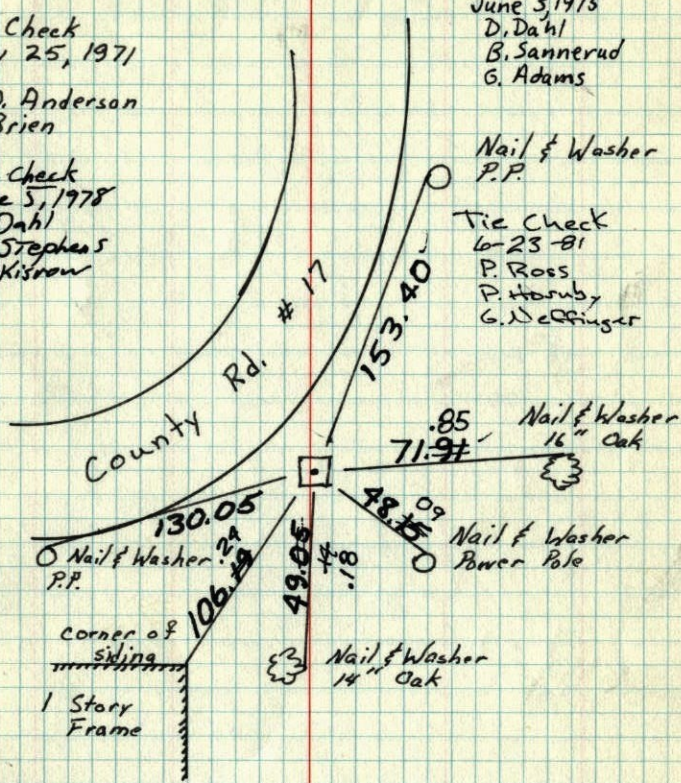 Check
25, 1971
Anderson
Brien
Check
5, 1978
Dahl
Stephens
Kisrow
June 3, 1975
D. Dahl
B. Sannerud
G. Adams
Nail & Washer
P.P.
Tie Check
6-23-81
P. Ross
P. Hornby
G. Neffinger
County Rd. #17
153.40
.85
71.91
Nail & Washer
16" Oak
48.15 09
Nail & Washer
Power Pole
130.05
Nail & Washer
P.P.
106.19 .24
49.05
.14
.18
Nail & Washer
14" Oak
corner of
siding
1 Story
Frame